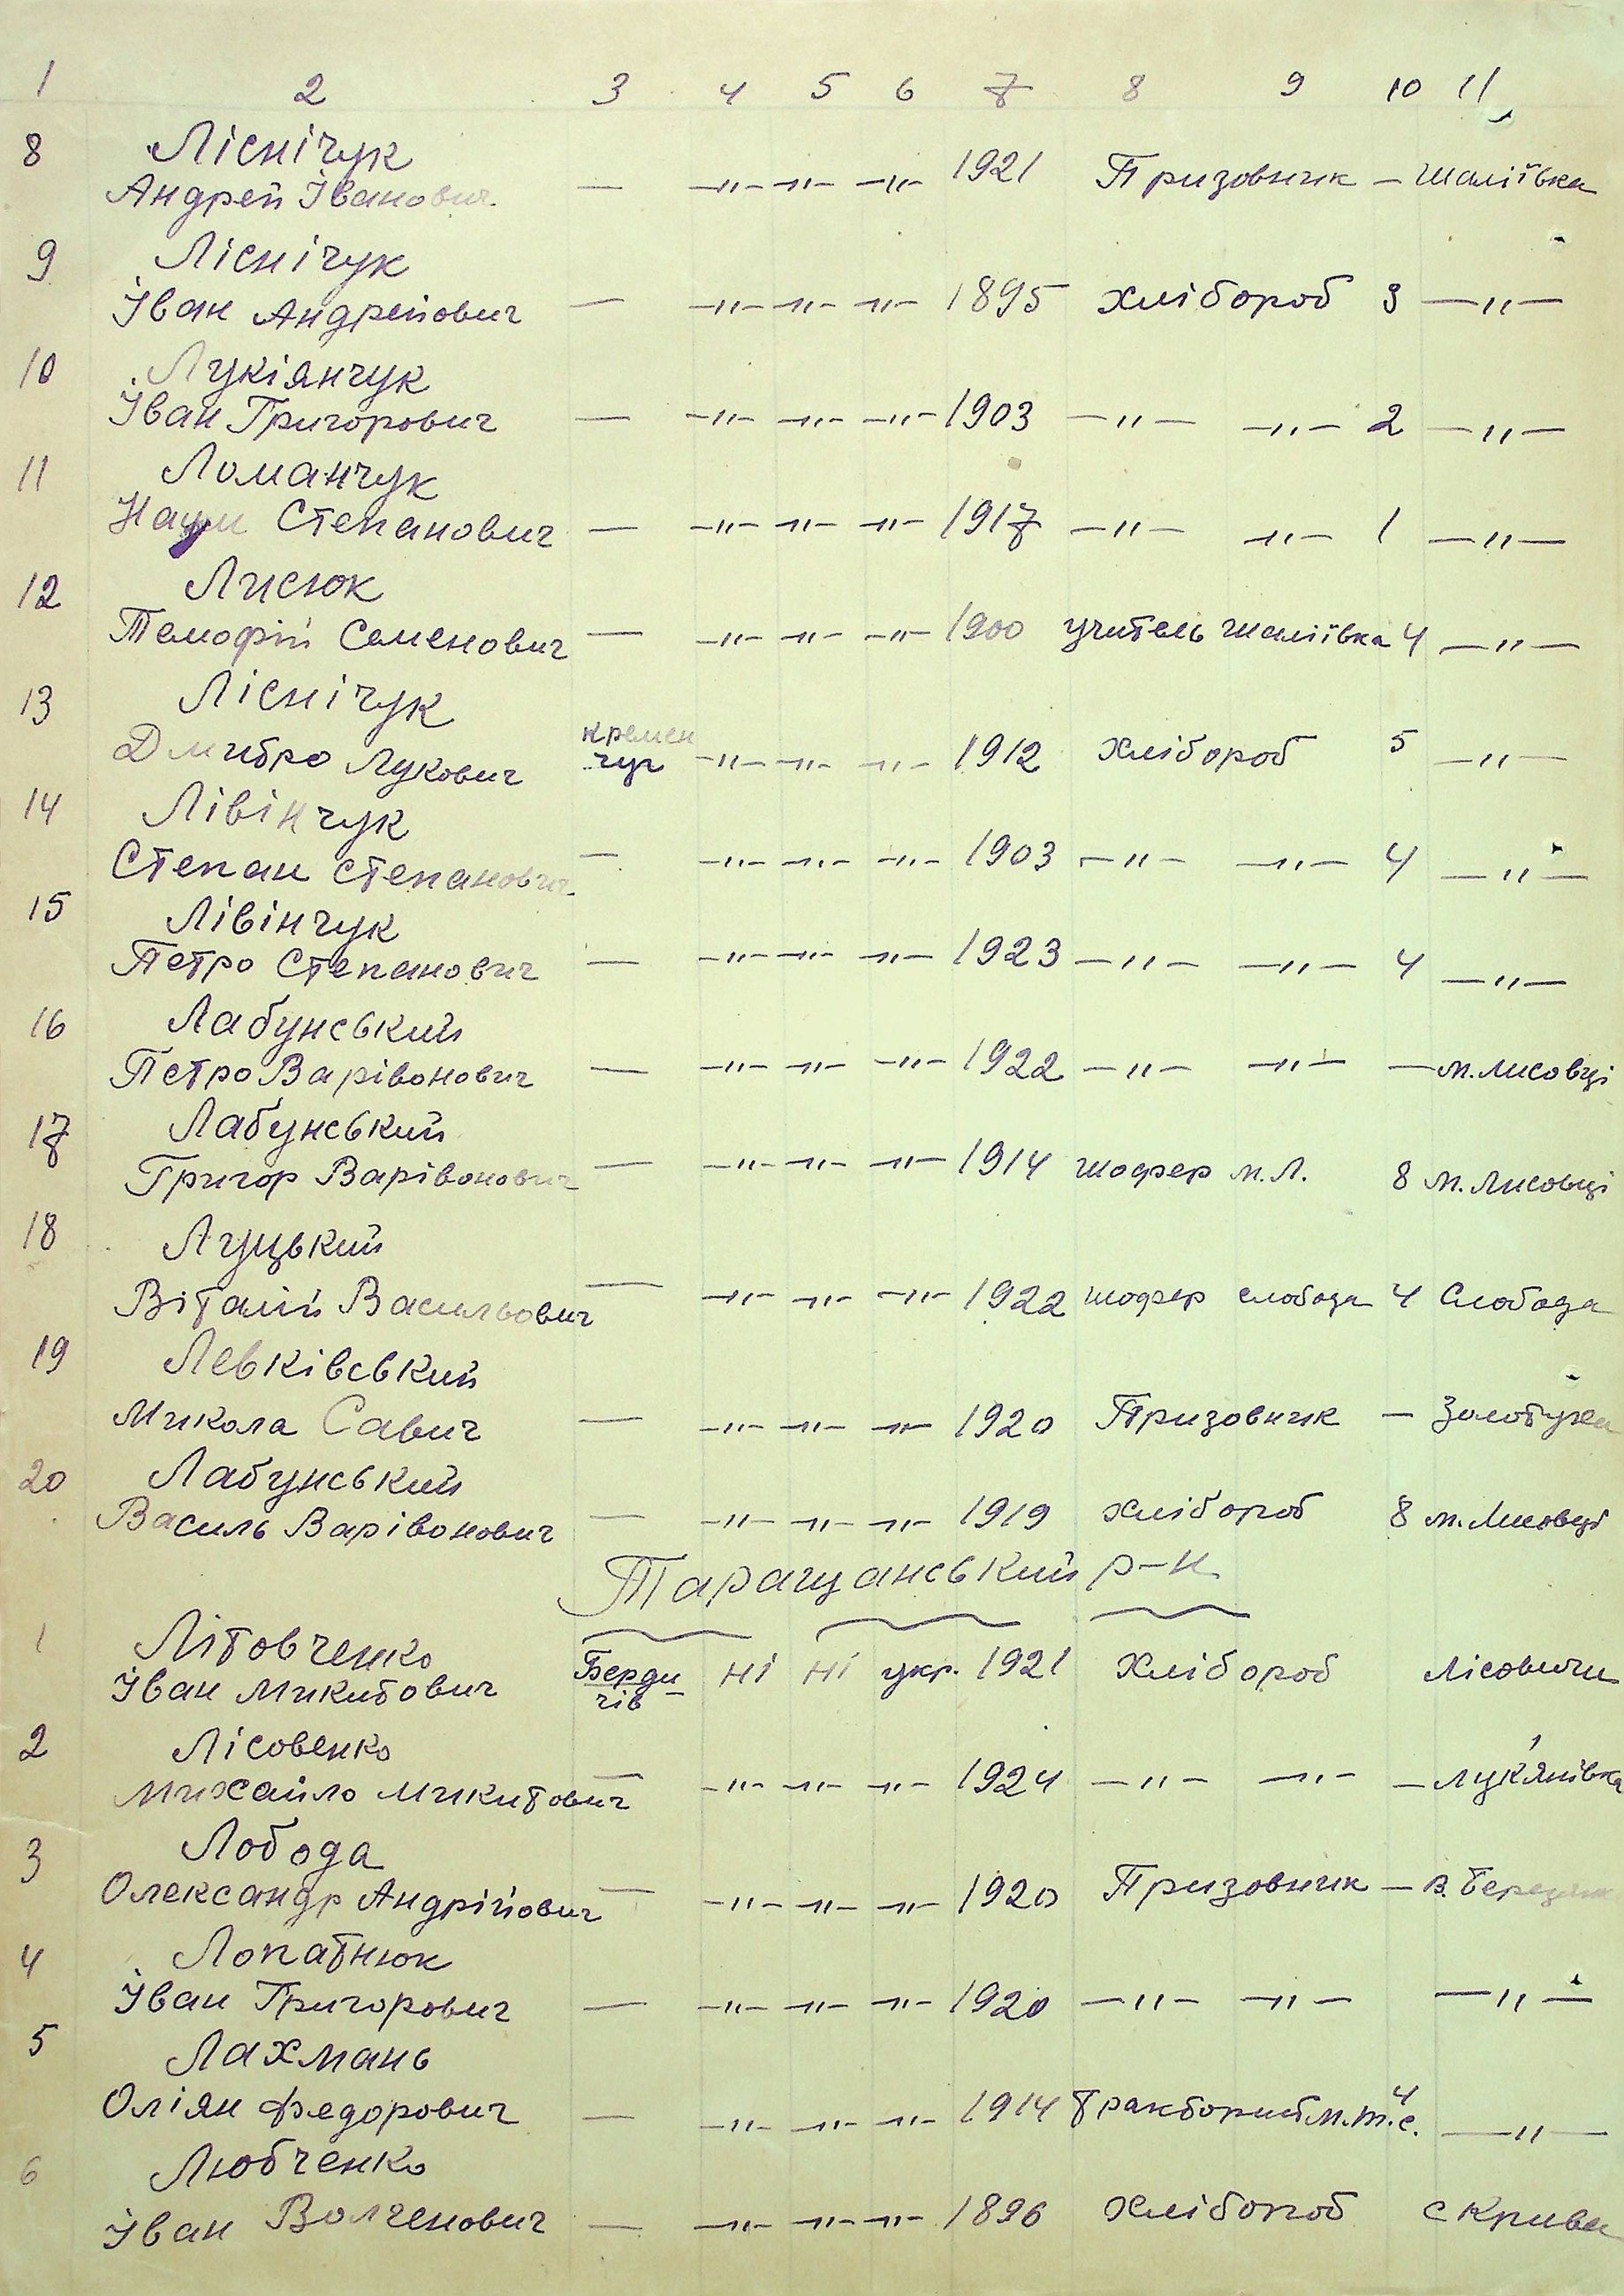 1 2 3 4 5 6 7 8 9 10 11
8 Ліснічук
Андрей Іванович — —"— —"— —"— 1921 Призовник — Шаліївка
9 Ліснічук
Іван Андрейович — —"— —"— —"— 1895 хлібороб 3 —"—
10 Лукіянчук
Іван Григорович — —"— —"— —"— 1903 —"— —"— 2 —"—
11 Ломанчук
Степанович — —"— —"— —"— 1917 —"— —"— 1 —"—
12 Лисюк
Темофій Семенович — —"— —"— —"— 1900 учитель Шаліївка 4 —"—
13 Ліснічук
Дмитро Лукович кремен
чуг —"— —"— —"— 1912 хлібороб 5 —"—
14 Лівінчук
Степан Степанович — —"— —"— —"— 1903 —"— —"— 4 —"—
15 Лівінчук
Петро Степанович — —"— —"— —"— 1923 —"— —"— 4 —"—
16 Лабунський
Петро Варівонович — —"— —"— —"— 1922 —"— —"— — М.Лисовці
17 Лабунський
Григор Варівонович — —"— —"— —"— 1914 шофер М.Л. 8 М.Лисовці
18 Луцький
Віталій Васильович — —"— —"— —"— 1922 шофер слобода 4 Слобода
19 Левківський
Микола Савич — —"— —"— —"— 1920 Призовник — Золотуха
20 Лабунський
Василь Варівонович — —"— —"— —"— 1919 хлібороб 8 М.Лисовці
Таращанський р-н
1 Літовченко
Іван Микитович Берди
чів ні ні укр. 1921 Хлібороб Лісовичи
2 Лісовенко
Михайло Микитович — —"— —"— —"— 1924 —"— —"— — Лук'янівка
3 Лобода
Олександр Андрійович — —"— —"— —"— 1920 Призовник — В.
4 Лопатнюк
Іван Григорович — —"— —"— —"— 1920 —"— —"— —"—
5 Лахмань
Оліян Федорович — —"— —"— —"— 1914 тракторист М.Т.С. 4 —"—
6 Любченко
Іван — —"— —"— —"— 1896 хлібороб с Крива